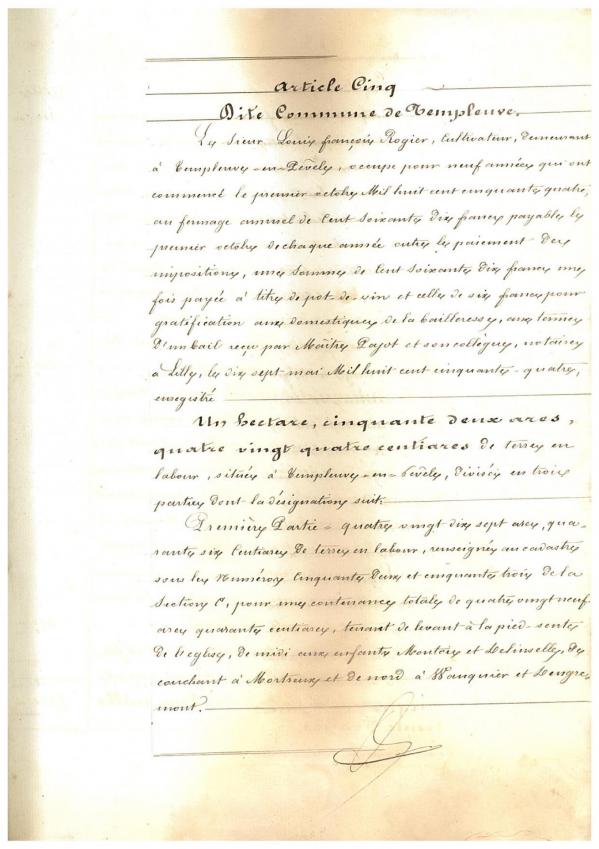 Article Cinq
Dite Commune de Templeuve.
Le Sieur Louis françois Rogier, Cultivateur, demeurant
à Templeuve-en-Pévèle, occupe pour neuf années qui ont
commencé le premier octobre Mil huit cent cinquante quatre,
au fermage annuel de Cent Soixante Dix francs payable le
premier octobre de chaque année outre le paiement Des
impositions, une Somme de Cent Soixante Dix francs une
fois payée à titre de pot-de-vin et celle de six francs pour
gratification aux domestiques de la bailleresse, aux termes
D'un bail reçu par Maître Pajot et son collègue, notaires
à Lille, le dix sept mai Mil huit cent cinquante-quatre,
enregistré
Un hectare, cinquante deux ares,
quatre vingt quatre centiares de terres en
labour, situées à Templeuve-en-Pévèle, divisées en trois
parties dont la désignation suit:
Première Partie = quatre vingt dix sept ares, qua-
rante six Centiares De terres en labour, renseignées au cadastre
sous les Numéros Cinquante Deux et cinquante trois de la
Section C, pour une contenance totale de quatre vingt neuf
ares quarante centiares, tenant de levant à la pied-sente
De l'église, de midi aux enfants Montois et Delinselle, de
couchant à Mortreux et de nord à Wauquier et Dengre-
mont.